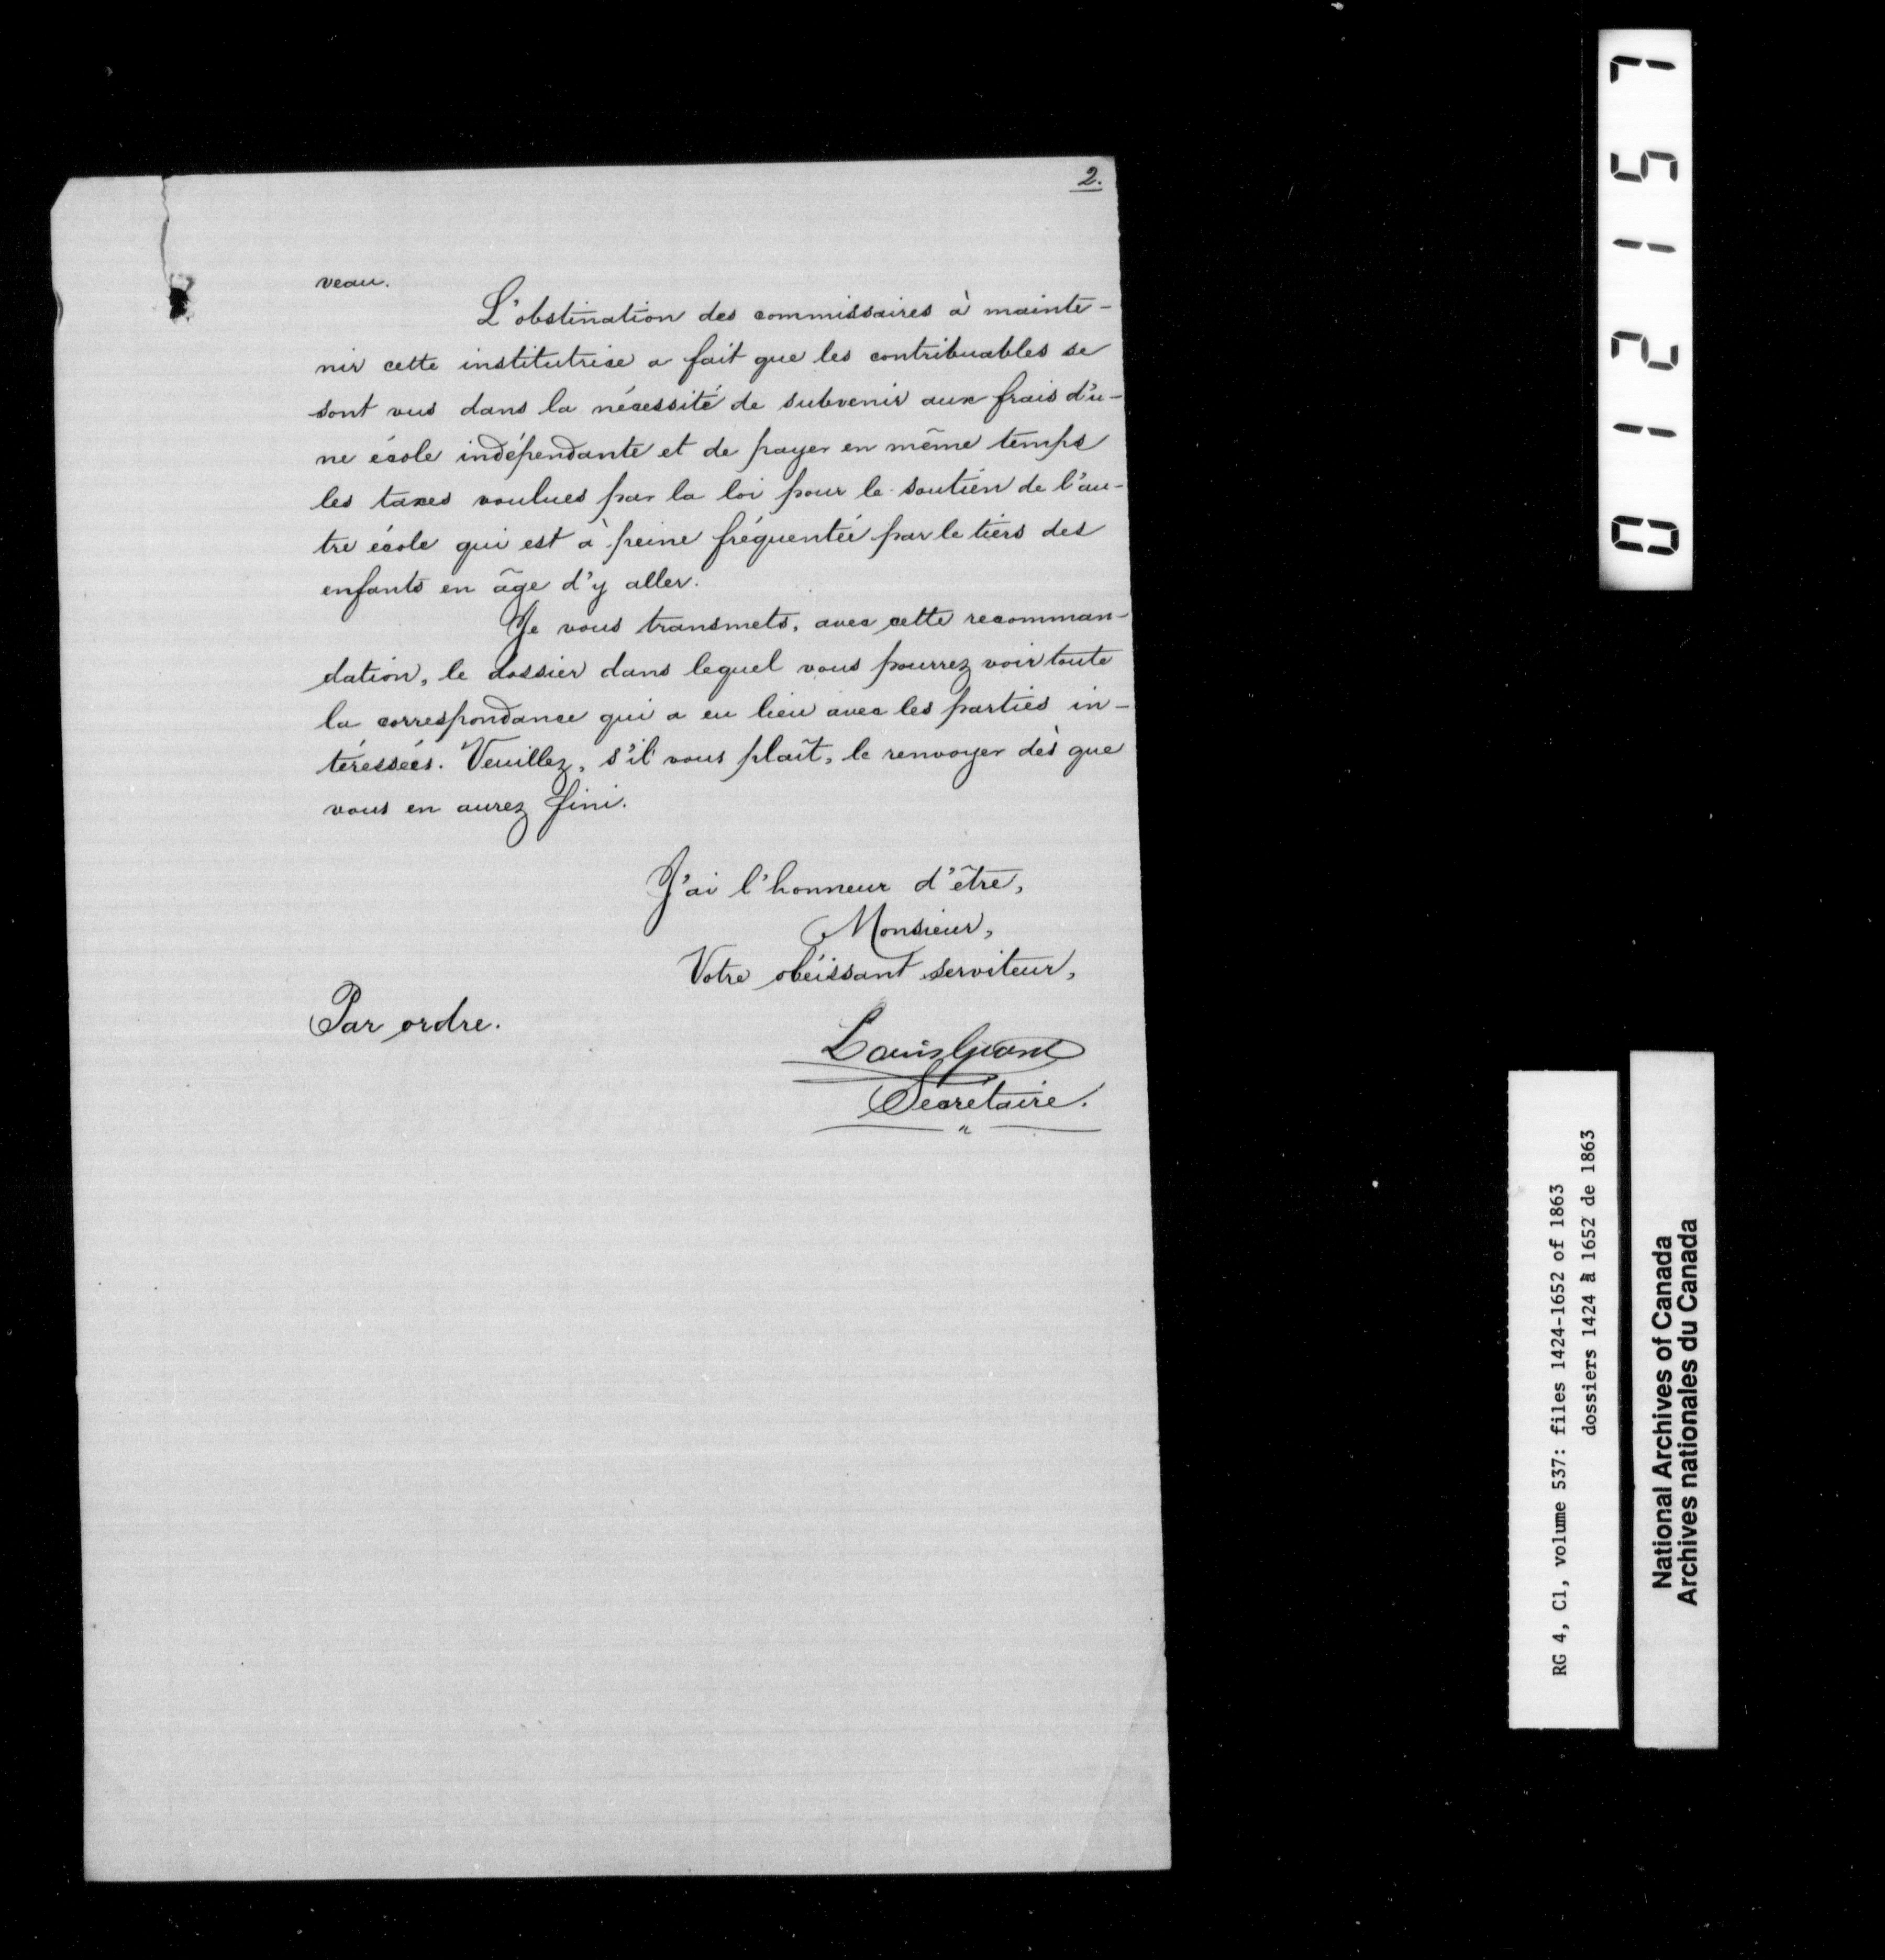 2.
veau.
L'obstination des commissaires à mainte-
nir cette institutrice a fait que les contribuables se
sont vus dans la nécessité de subvenir aux frais d'u-
ne école indépendante et de payer en même temps
les taxes voulues par la loi pour le soutien de l'au-
tre école qui est à peine fréquentée par le tiers des
enfants en âge d'y aller.
Je vous transmets, avec cette recomman-
dation, le dossier dans lequel vous pourrez voir toute
la correspondance qui a eu lieu avec les parties in-
téressées. Veuillez, s'il vous plaît, le renvoyer dès que
vous en aurez fini.
J'ai l'honneur d'être,
Monsieur,
Votre obéissant serviteur,
Par ordre.
Louis Giard
Secrétaire.
012157
RG 4, C1, volume 537: files 1424-1652 of 1863
dossiers 1424 à 1652 de 1863
National Archives of Canada
Archives nationales du Canada